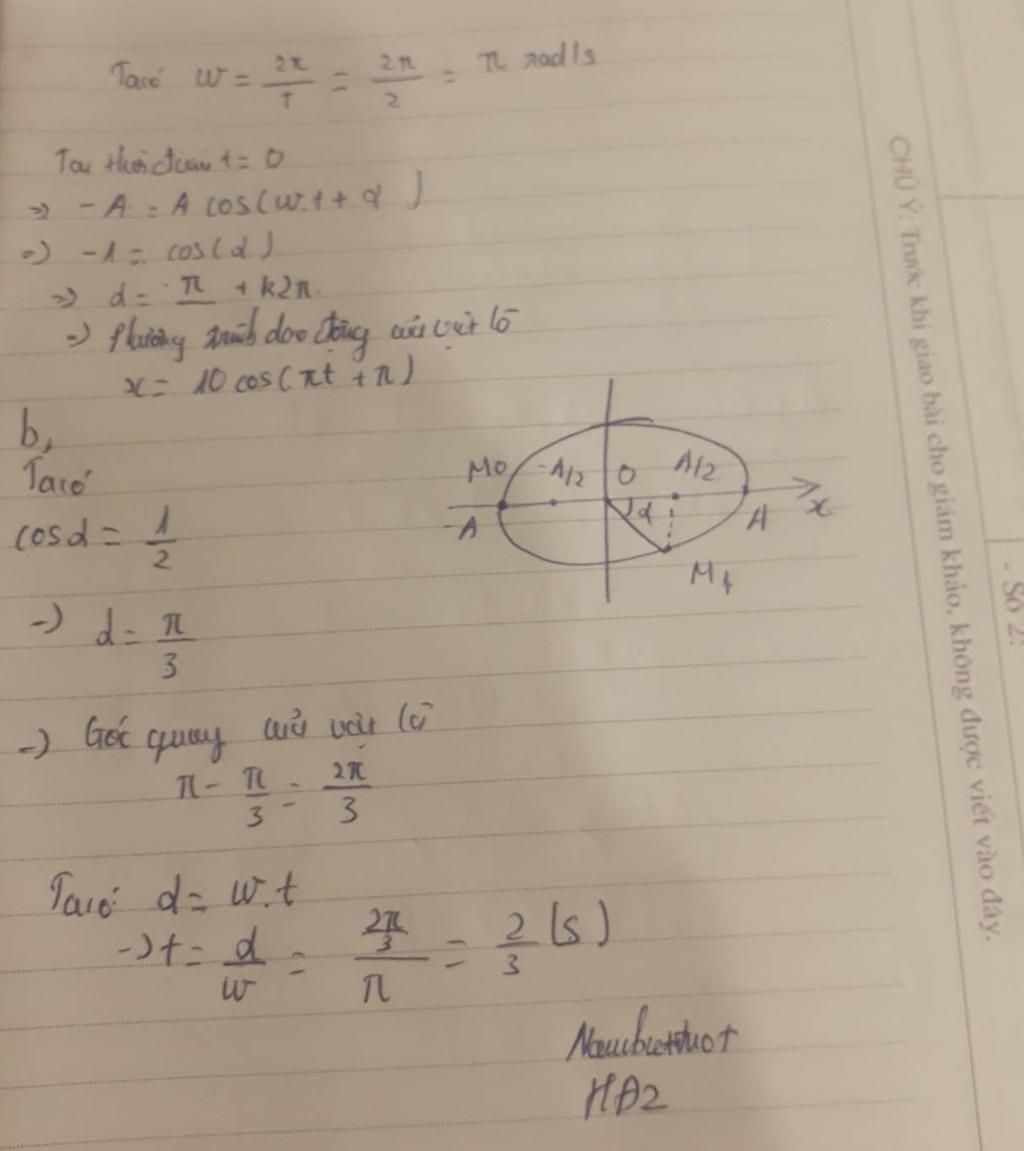 Ta có w = 2π/T = 2π/2 = π rad/s
Tại thời điểm t = 0
=> -A = A cos(w.t + α)
=> -1 = cos(α)
=> α = π + k2π.
=> Phương trình dao động của vật là
x = 10 cos(πt + π)
b,
Ta có
cosα = 1/2
M0 -A/2 O A/2
-A α A x
Mt
-> α = π/3
-> Góc quay của vật là
π - π/3 = 2π/3
Ta có: α = w.t
-> t = α/w = (2π/3)/π = 2/3 (s)
HĐ2
CHÚ Ý: Trước khi giao bài cho giám khảo, không được viết vào đây.
- Số 2: